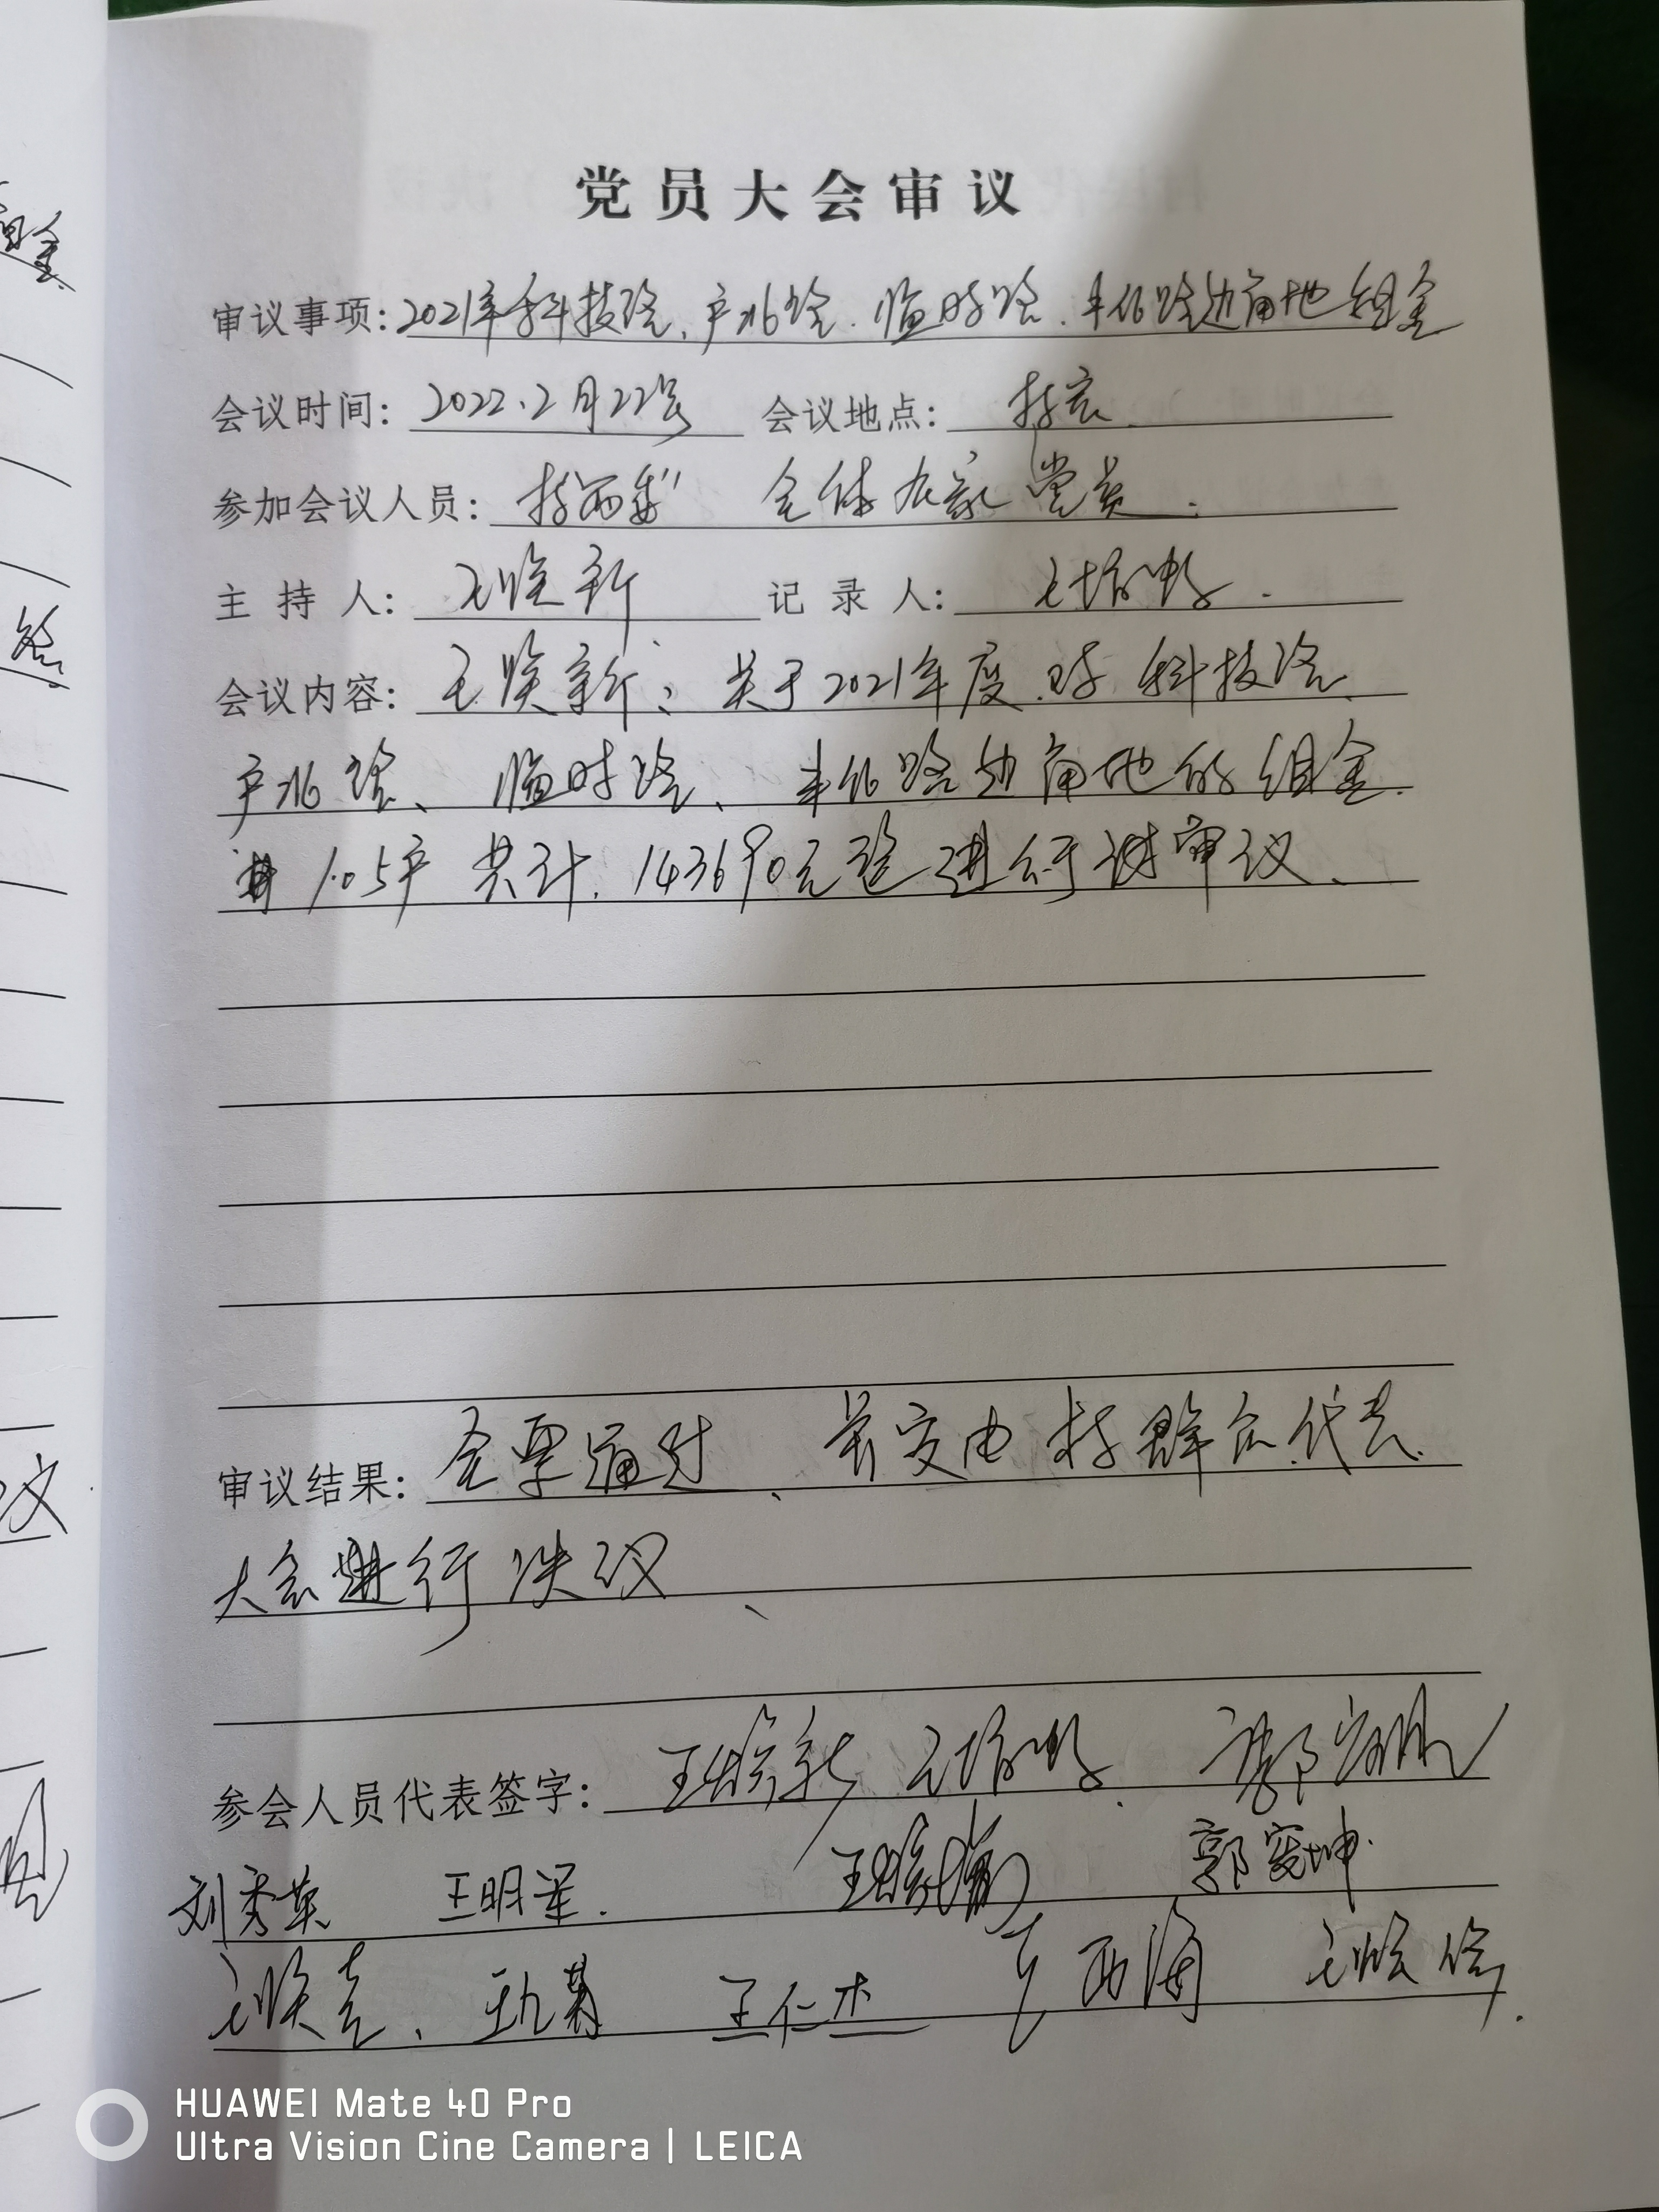 党员大会审议
审议事项：2021年科技路、产业路、临时路、丰化路边角地租金
会议时间：2022.2月22号 会议地点：村室
参加会议人员：村"两委" 全体在家党员.
主持人：王焕新 记录人：王培峰.
会议内容：王焕新：关于2021年度.对科技路、
产业路、临时路、丰化路边角地的租金.
共105户 共计.143690元整进行讨审议、
审议结果：全票通过、并交由村群众代表
大会进行决议、
参会人员代表签字：王焕新 王培峰. 郭
刘秀英 王明军. 王焕 郭宪坤.
王焕 王九菊 王仁杰 王西海 王焕
租金.
路.
议.
HUAWEI Mate 40 Pro
Ultra Vision Cine Camera | LEICA